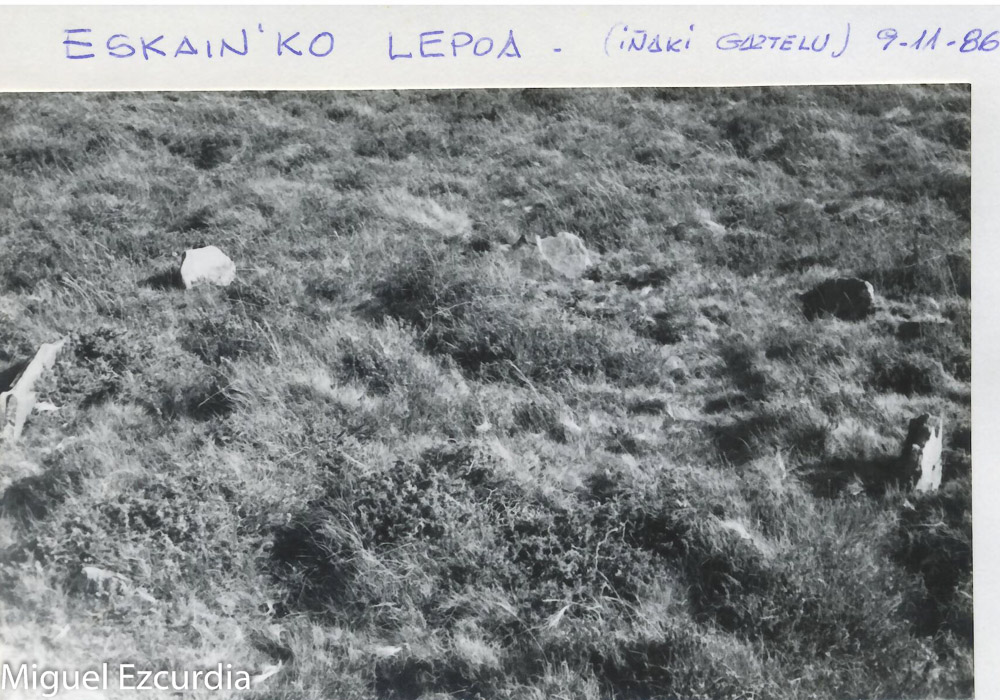 ESKAIN'KO LEPOA - (IÑAKI GAZTELU) 9-11-86
Miguel Ezcurdia